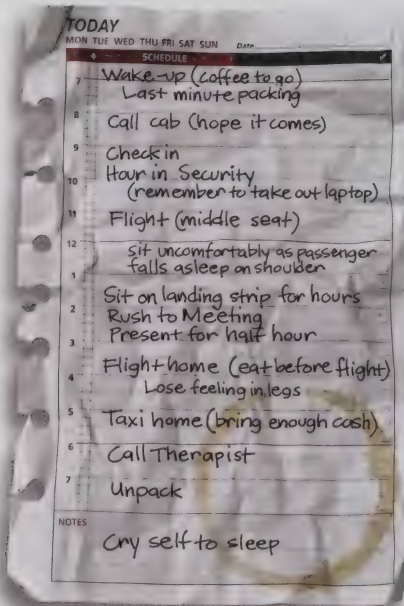 TODAY
MON TUE WED THU FRI SAT SUN Date
SCHEDULE
7 Wake-up (coffee to go)
Last minute packing
8 Call cab (hope it comes)
9 Check in
Hour in Security
10 (remember to take out laptop)
11 Flight (middle seat)
12 Sit uncomfortably as passenger
falls asleep on shoulder
1
Sit on landing strip for hours
2 Rush to Meeting
Present for half hour
3
Flight home (eat before flight)
4 Lose feeling in legs
5 Taxi home (bring enough cash)
6 Call Therapist
7 Unpack
NOTES
Cry self to sleep